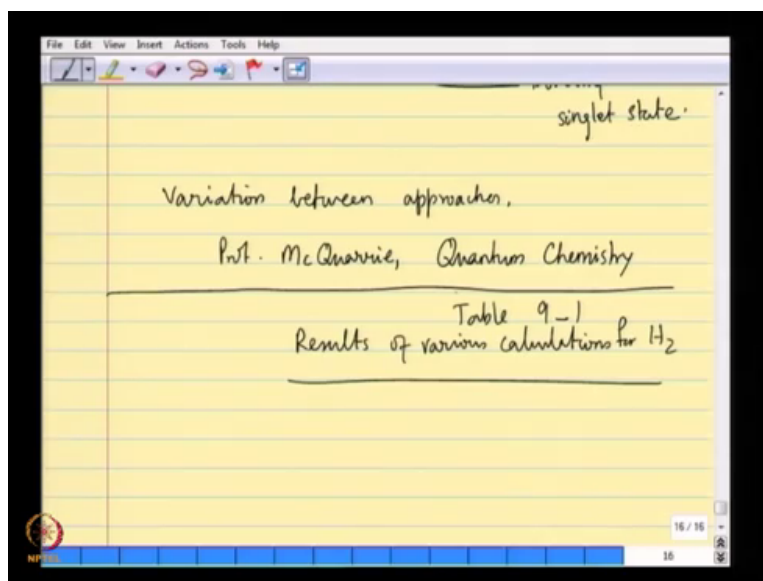 File Edit View Insert Actions Tools Help
singlet state.
Variation between approaches.
Prof. McQuarrie, Quantum Chemistry
Table 9-1
Results of various calculations for H2
16 / 16
16
NPTEL